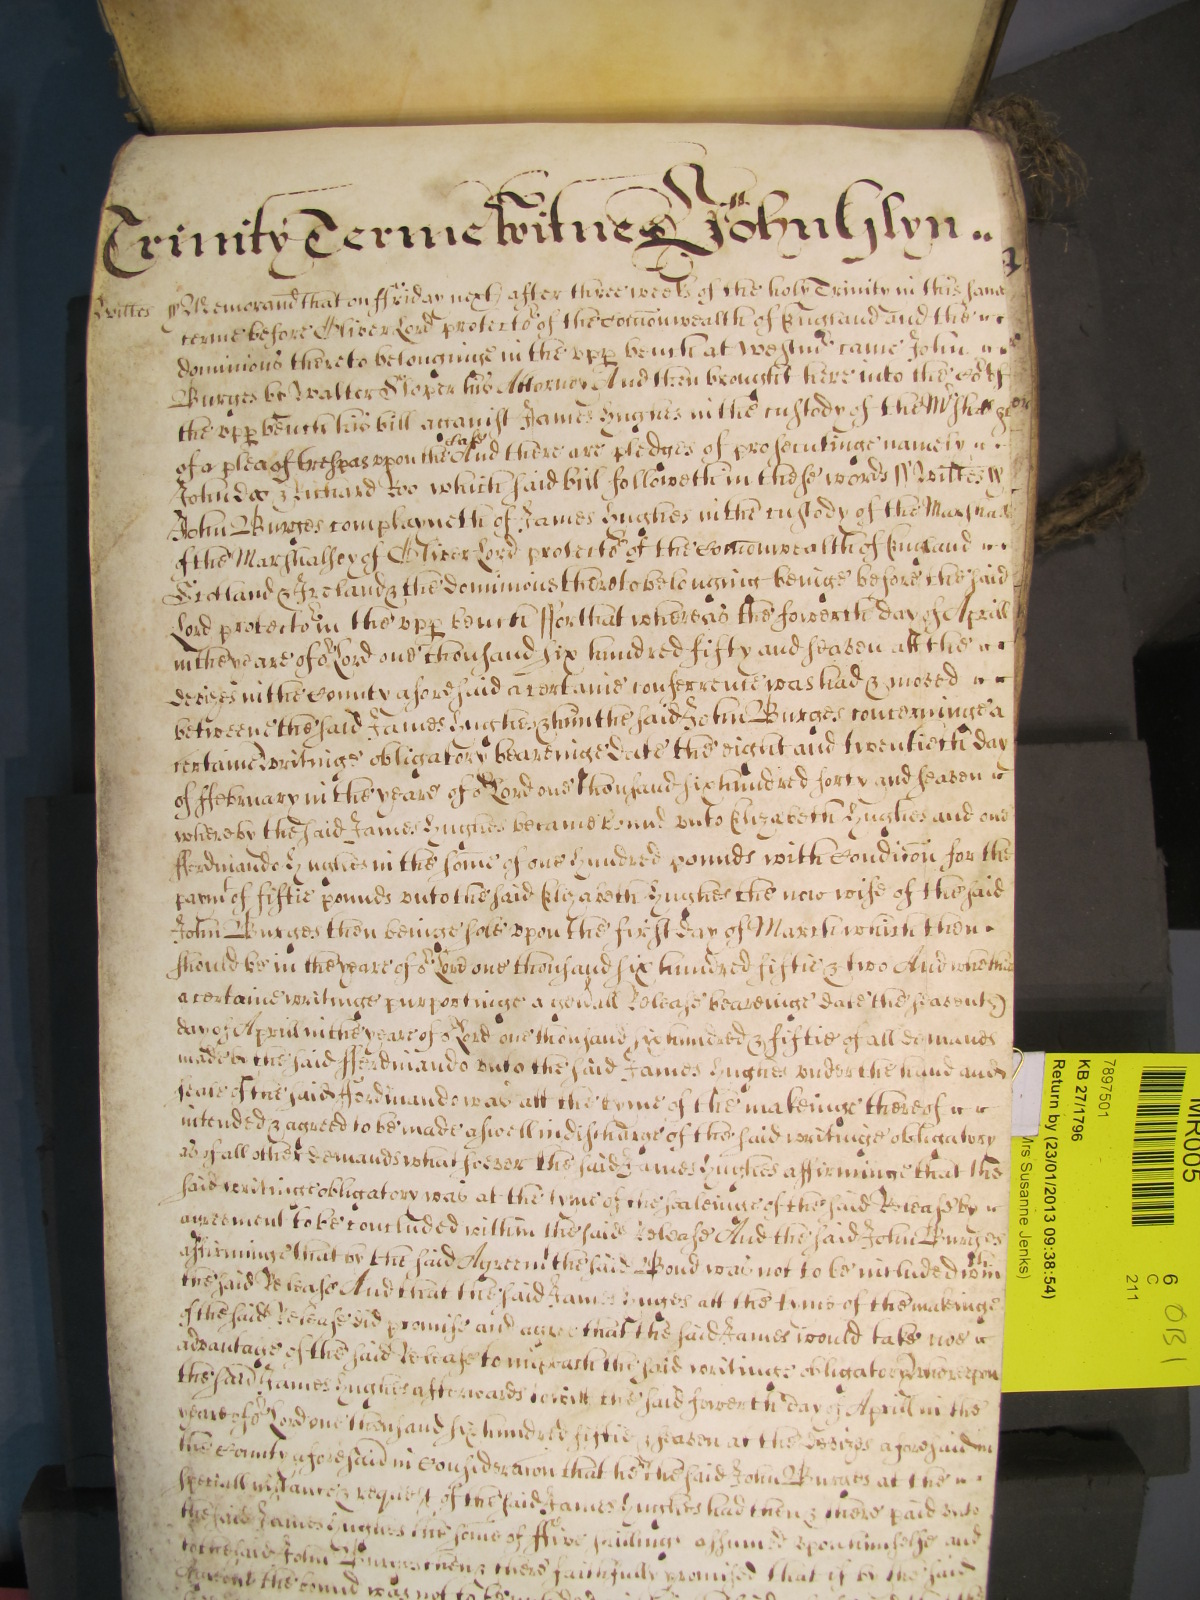 Trinity Terme Witnes John Glyn ..
Wiltes Memorand that on ffriday next after three weeks of the holy Trinity in this same
terme before Oliver Lord protector of the Comonwealth of England and the
dominions thereto belonginge in the upp bench at Westmr came John
Burges by Walter Sloper his Attorney And then brought here into the Cort of
the upp bench his bill against James Hughes in the custody of the Mshall &c
of a plea of trespas upon the case And there are pledges of prosecutinge namely
John Doo & Richard Roo which said bill followeth in these words Wiltes
John Burges complayneth of James Hughes in the custody of the Marshall
of the Marshalsey of Oliver Lord protector of the Comonwealth of England
Scotland & Ireland & the dominions thereto belonging beinge before the said
Lord protector in the upp bench ffor that whereas the fowerth day of Aprill
in the yeare of or Lord one thousand six hundred fifty and seaven att the
devizes in the County aforesaid a certaine conferrence was had & moved
betweene the said James Hughes & him the said John Burges concerninge a
certaine writinge obligatory bearinge date the eight and twentieth day
of ffebruary in the yeare of or Lord one thousand six hundred forty and seaven
whereby the said James Hughes became bound unto Elizabeth Hughes and one
fferdinando Hughes in the some of one hundred pounds with Condicon for the
paymt of fiftie pounds unto the said Elizabeth Hughes the now wife of the said
John Burges then beinge sole upon the first day of March which then
should be in the yeare of or Lord one thousand six hundred fiftie & two And whether
a certaine writinge purportinge a genall Release bearinge date the seaventh
day of Aprill in the yeare of or Lord one thousand six hundred & fiftie of all demands
made by the said fferdinando unto the said James Hughes under the hand and
seale of the said fferdinando was att the tyme of the makeinge thereof
intended & agreed to be made aswell in discharge of the said writinge obligatory
as of all other demands whatsoever the said James Hughes affirminge that the
said writinge obligatory was at the tyme of the sealeinge of the said Release by
agreement to be concluded within the said Release And the said John Burges
affirminge that by the said Agreemt the said Bond was not to be included within
the said Release And that the said James Hughes att the tyme of the makeinge
of the said Release did promise and agree that the said James would take noe
advantage of the said Release to impeach the said writinge obligatory Whereupon
the said James Hughes afterwards to witt the said fowerth day of Aprill in the
yeare of or Lord one thousand six hundred fiftie & seaven at the devizes aforesaid in
the County aforesaid in Consideracon that he the said John Burges at the
speciall instance & request of the said James Hughes had then & there paid unto
the said James Hughes the some of ffive shillings assumed upon himselfe and
to the said John Burges then & there faithfully promised that if by the said
Agreemt the bond was not to be
MR005
7897501
KB 27/1796
Return by (23/01/2013 09:38:54)
Mrs Susanne Jenks)
6
C
211
OB1